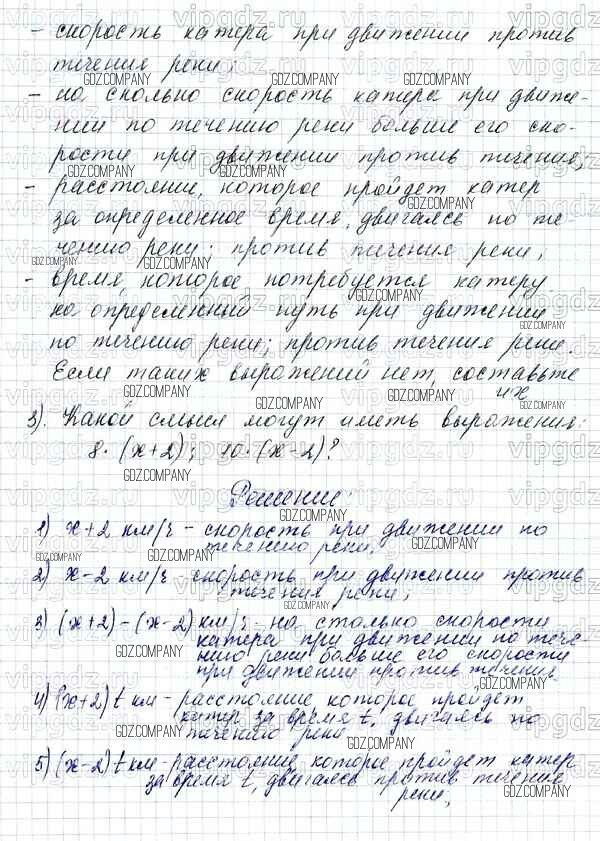 - скорость катера при движении против
течения реки;
- на сколько скорость катера при движе-
нии по течению реки больше его ско-
рости при движении против течения;
- расстояние, которое пройдет катер
за определенное время, двигаясь по те-
чению реки; против течения реки;
- время, которое потребуется катеру
на определенный путь при движении
по течению реки; против течения реки.
Если таких выражений нет, составьте
их
3). Какой смысл могут иметь выражения:
8·(x+2); 10·(x-2)?
Решение:
1) x+2 км/ч - скорость при движении по
течению реки;
2) x-2 км/ч - скорость при движении против
течения реки;
3) (x+2)-(x-2) км/ч - на столько скорости
катера при движении по тече-
нию реки больше его скорости
при движении против течения
4) (x+2)t км - расстояние, которое пройдет
катер за время t, двигаясь по
течению реки
5) (x-2)t км - расстояние, которое пройдет катер
за время t, двигаясь против течения
реки;
vipgdz.ru
GDZ.COMPANY